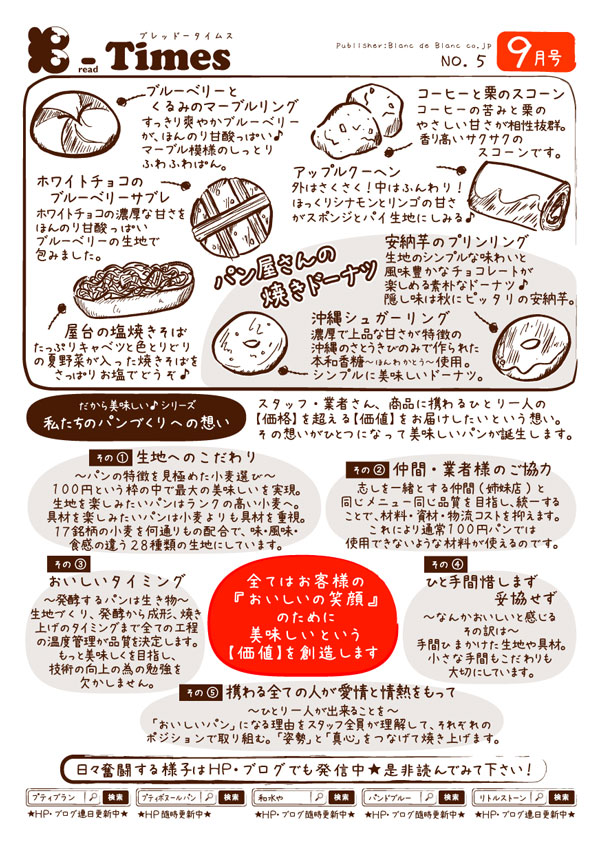 ブレッドータイムス
B-Times
read
Publisher:Blanc de Blanc co.jp
NO.5
9月号
ブルーベリーと
くるみのマーブルリング
すっきり爽やかブルーベリー
が、ほんのり甘酸っぱい♪
マーブル模様のしっとり
ふわふわぱん。
コーヒーと栗のスコーン
コーヒーの苦みと栗の
やさしい甘さが相性抜群。
香り高いサクサクの
スコーンです。
ホワイトチョコの
ブルーベリーサブレ
ホワイトチョコの濃厚な甘さを
ほんのり甘酸っぱい
ブルーベリーの生地で
包みました。
アップルクーヘン
外はさくさく!中はふんわり!
ほっくりシナモンとリンゴの甘さ
がスポンジとパイ生地にしみる♪
パン屋さんの
焼きドーナツ
安納芋のプリンリング
生地のシンプルな味わいと
風味豊かなチョコレートが
楽しめる素朴なドーナツ♪
隠し味は秋にピッタリの安納芋。
屋台の塩焼きそば
たっぷりキャベツと色とりどり
の夏野菜が入った焼きそばを
さっぱりお塩でどうぞ♪
沖縄シュガーリング
濃厚で上品な甘さが特徴の
沖縄のさとうきびのみで作られた
本和香糖〜ほんわかとう〜使用。
シンプルに美味しいドーナツ。
だから美味しい♪シリーズ
私たちのパンづくりへの想い
スタッフ・業者さん、商品に携わるひとり一人の
【価格】を超える【価値】をお届けしたいという想い。
その想いがひとつになって美味しいパンが誕生します。
その① 生地へのこだわり
〜パンの特徴を見極めた小麦選び〜
100円という枠の中で最大の美味しいを実現。
生地を楽しみたいパンはランクの高い小麦へ。
具材を楽しみたいパンは小麦よりも具材を重視。
17銘柄の小麦を何通りもの配合で、味・風味・
食感の違う28種類の生地にしています。
その② 仲間・業者様のご協力
志しを一緒とする仲間(姉妹店)と
同じメニュー同じ品質を目指し、統一する
ことで、材料・資材・物流コストを抑えます。
これにより通常100円パンでは
使用できないような材料が使えるのです。
その③
おいしいタイミング
〜発酵するパンは生き物〜
生地づくり、発酵から成形、焼き
上げのタイミングまで全ての工程
の温度管理が品質を決定します。
もっと美味しくを目指し、
技術の向上の為の勉強を
欠かしません。
全てはお客様の
『おいしいの笑顔』
のために
美味しいという
【価値】を創造します
その④
ひと手間惜しまず
妥協せず
〜なんかおいしいと感じる
その訳は〜
手間ひまかけた生地や具材。
小さな手間もこだわりも
大切にしています。
その⑤ 携わる全ての人が愛情と情熱をもって
〜ひとり一人が出来ることを〜
「おいしいパン」になる理由をスタッフ全員が理解して、それぞれの
ポジションで取り組む。「姿勢」と「真心」をつなげて焼き上げます。
日々奮闘する様子はHP・ブログでも発信中★是非読んでみて下さい!
プティブラン 検索
★HP・ブログ連日更新中★
プティボヌールパン 検索
★HP随時更新中★
和水や 検索
★HP・ブログ随時更新中★
パンドブルー 検索
★HP・ブログ随時更新中★
リトルストーン 検索
★HP・ブログ連日更新中★